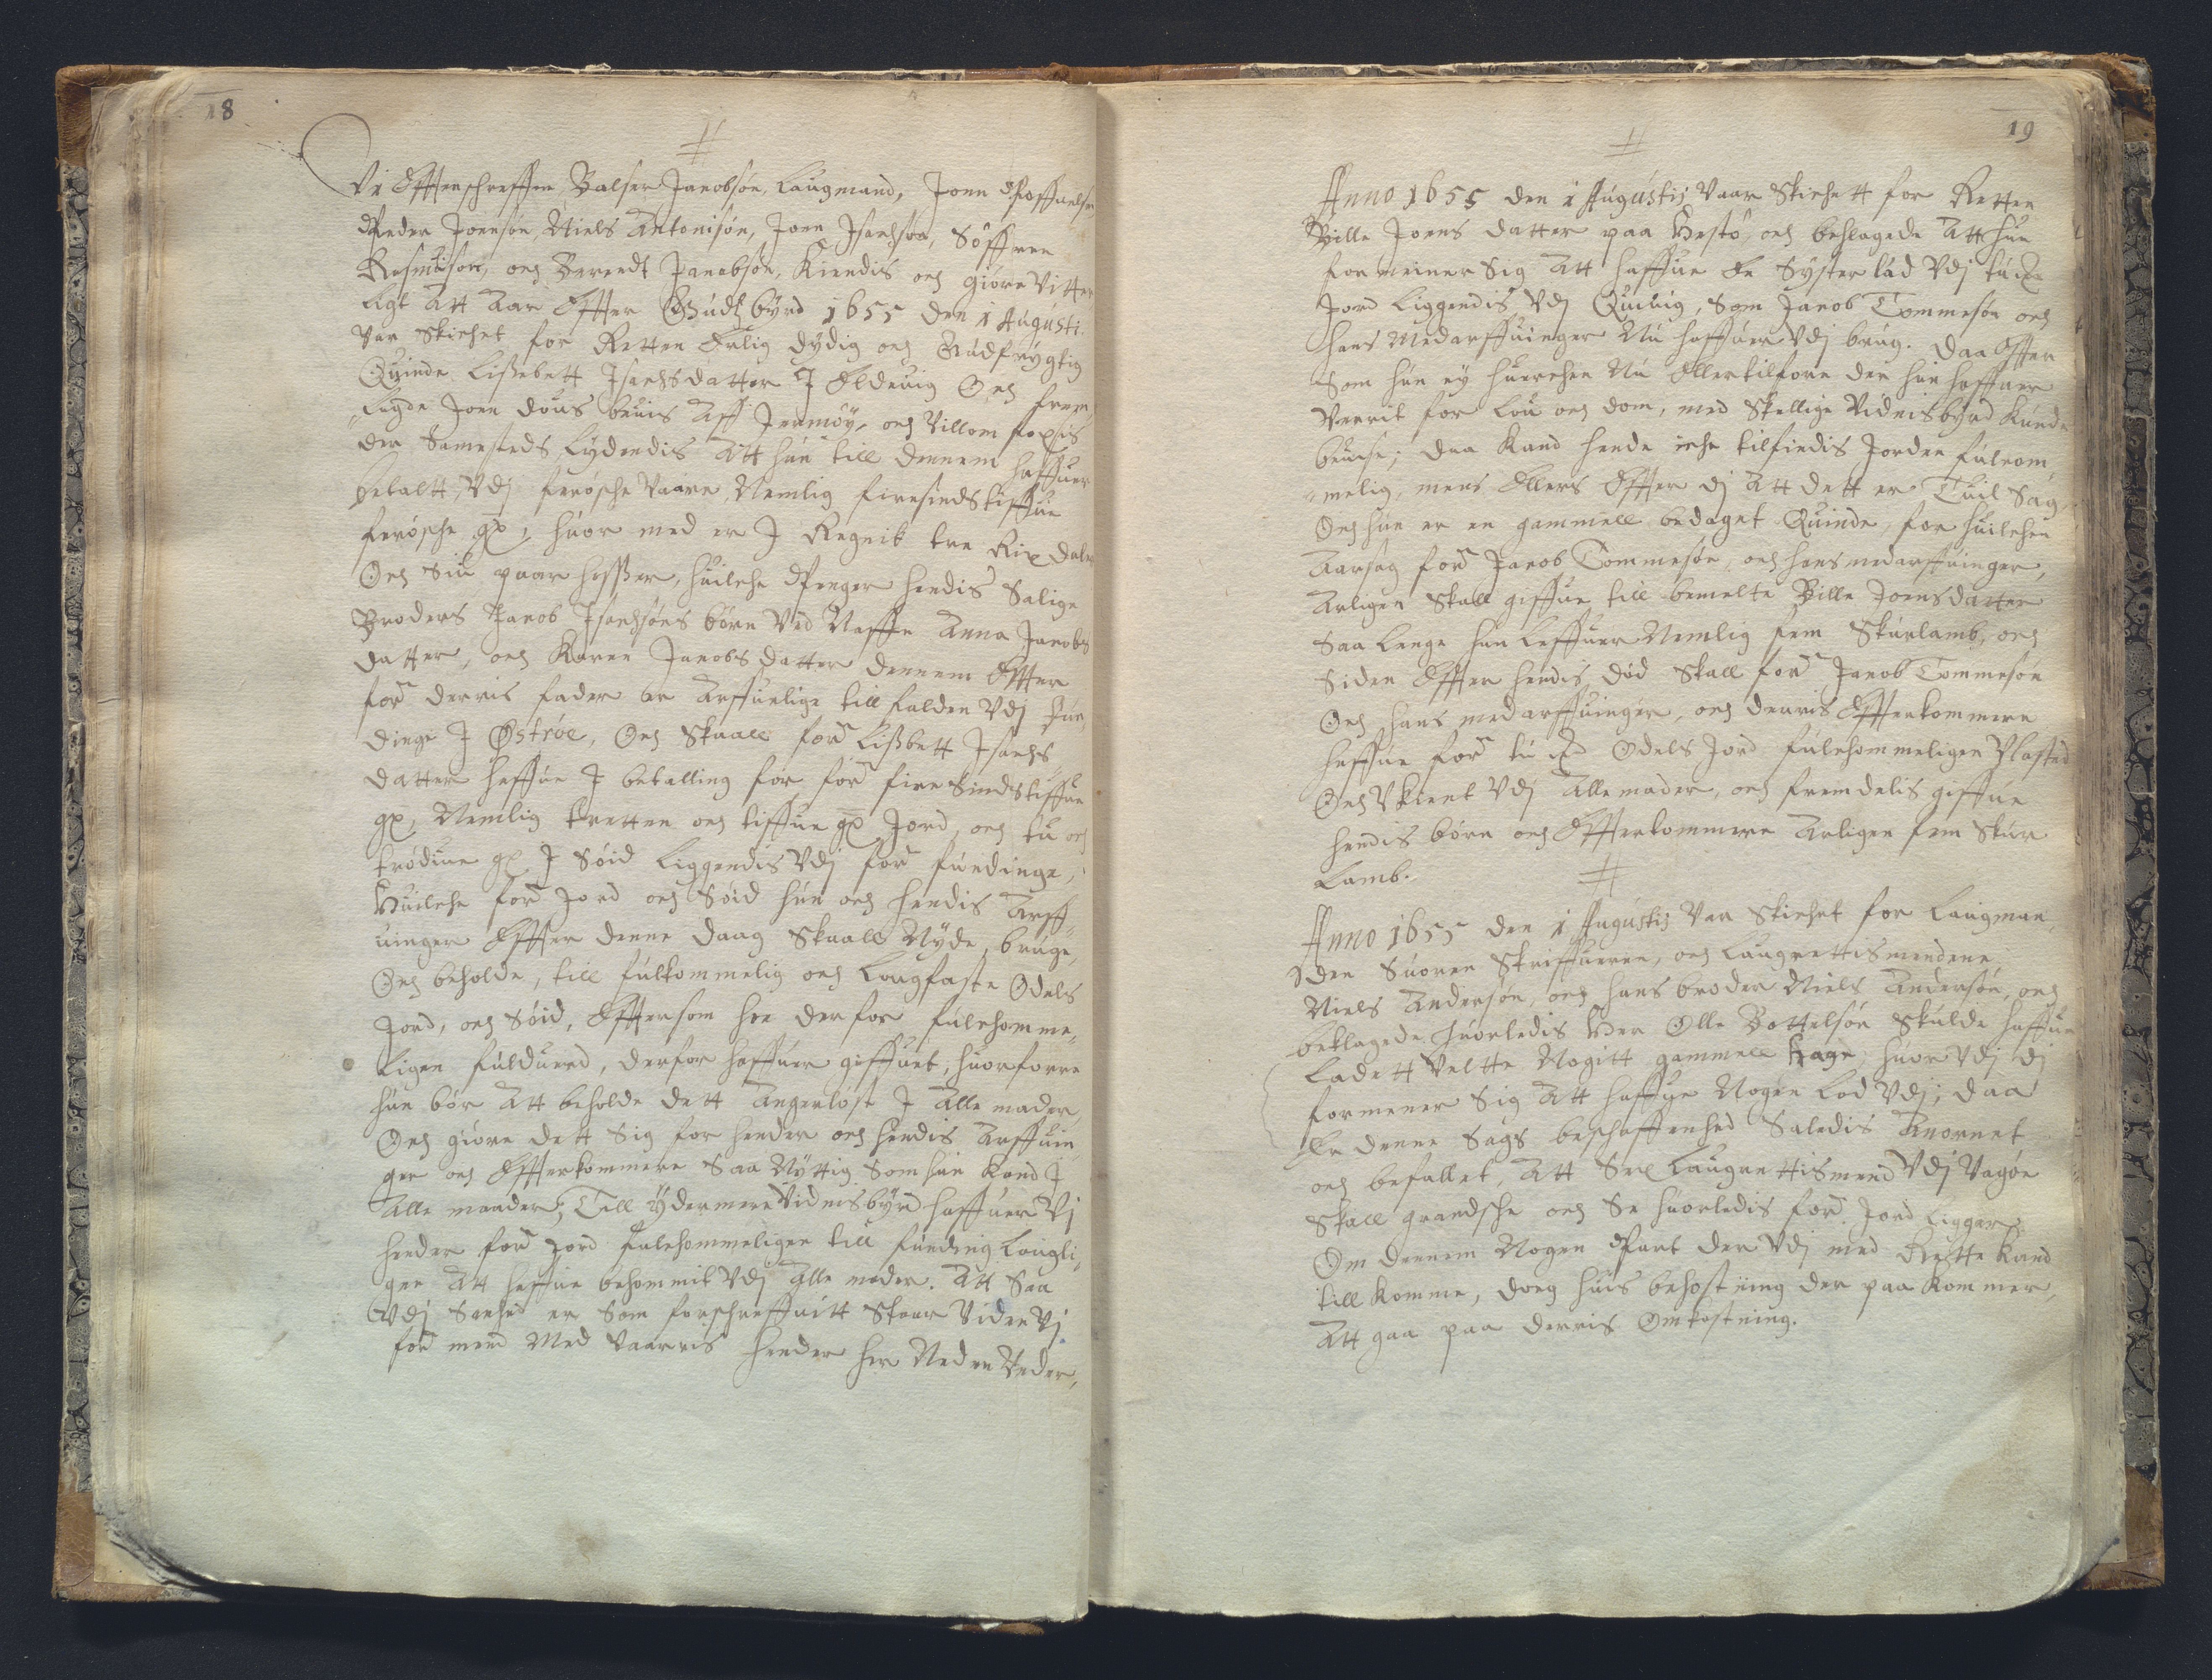 18
Vi Efftterschreffne, Balser Jacobsøn, Laugmand, Joen Poffuelsen
Peder Joensøn, Niels Antonisøn, Joen Isachsøn, Søffren
Rasmusøn, och Berendt Jacobsøn, Kiendis och giøre Vitter
ligt Att Aar Effter Gudtz byrd 1655 den 1 Augusti
Var Skichet for Retten Erlig dydig och Gudfrygtig
Quinde Lissebett Isachsdatter I Eldeuig Och frem
lagde Joen beuis Aff Jermøy, och Villom
der Samesteds Lydendis Att hun till dennem haffuer
betalt, Vdj ferøsche Vaare, Nemlig firesindstiffue
ferøsche gl, huor med er I Regnit tre Rix daler
Och Siu paar hosser, huilche Penger hendis Salige
Broders Jacob Isachsøns børn Ved Naffn Anna Jacobs
datter, och Karen Jacobs datter dennem Effter
ford derris fader er Arffuelige till falden Vdj fun
dinge I Østrøe, Och Skaall ford Lissbett Isachs
datter haffue I betalling for ford fire Sindstiffue
gl, Nemlig tretten och tiffue gl Jord, och tu och
trediue gl I Søid Liggendis Vdj ford fundinge,
Huilche ford Jord och Søid hun och hendis Arff
uinger Effter denne daag Skaall Nyde, bruge,
Och beholde, till fulkommelig och Laugfaste Odels
Jord, och Søid, Effttersom hun derfor fulchomme,
ligen fuldured, derfor haffuer giffuet, huorforre
hun bør Att beholde dett Angerløst I Alle mader,
Och giøre dett Sig for hender och hendis Arffuin
ger och Effterkommere Saa Nyttig Som hun kand I
Alle maader, Till ydermere Vidnisbyrd haffuer Vj
hender ford Jord fulchommeligen till funding Laugli,
gen Att haffue bekommit Vdj Alle mader. Att Saa
Vdj Sanhed er Som forschreffuitt Staar Viden Vj
ford mend Med Vaarris hender her Neden Vnder,
19
Anno 1655 den 1 Augustij Vaar Skichett for Retten
Bille Joens datter paa Hestø, och beklagede Att hun
formeiner Sig Att haffue En Syster lod Vdj tu
Jord Liggendis Vdj Quiuig, Som Jacob Tommesøn och
hans Medarffuinger Nu haffuer Vdj brug. Daa Effter
Som hun ey huerchen Nu Eller tilforn der hun haffuer
Veerit for Lou och dom, med Skellige Vidnisbyrd kunde
beuise; daa kand hende iche tilfindis Jorden fulkom
melig, mens Ellers Effter dj Att dett er Tuil Sag,
Och hun er en gammell bedaget Quinde, for huilchen
Aarsag ford Jacob Tommesøn, och hans medarffuinger,
Arligen Skall giffue till bemelte Bille Joensdatter
Saa Lenge hun Leffuer Nemlig fem Skurlamb, och
Siden Effter hendis død Skall ford Jacob Tommesøn
Och hans medarffuinger, och derris Effterkommere
haffue ford tu Odels Jord fulchommeligen
Och Vklent Vdj Alle mader, och fremdelis giffue
hendis børn och Effterkommere Arligen fem Skur
Lamb.
Anno 1655 den 1 Augustij Var Skichet for Laugman,
den Suoren Skriffueren, och Laugrettismendene
Niels Andersøn, och hans broder Niels Andersøn, och
beklagede huorledis Her Olle Bottelsøn Skulde haffue
Ladett Veltte Nogitt gammell hage, huor Vdj dj
formener Sig Att haffue Nogen Lod Vdj; daa
Er denne Sags beschaffenhed Saledis Anornet
och befallet, Att Sex Laugrettismend Vdj Vagøe
Skall grandsche och Se huorledis ford Jord Ligger,
Om dennem Nogen Part der Vdj med Rette kand
till komme, doeg huis bekostning der paa kommer,
Att gaa paa derris Omkostning.